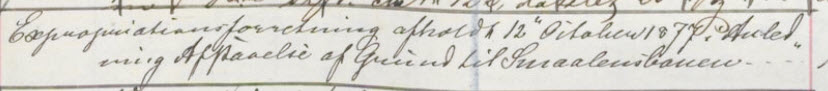 Expropriationsforretning afholdt 12" October 1877 i Anled
ning Afstaaelse af Grund til Smaalensbanen - - - "